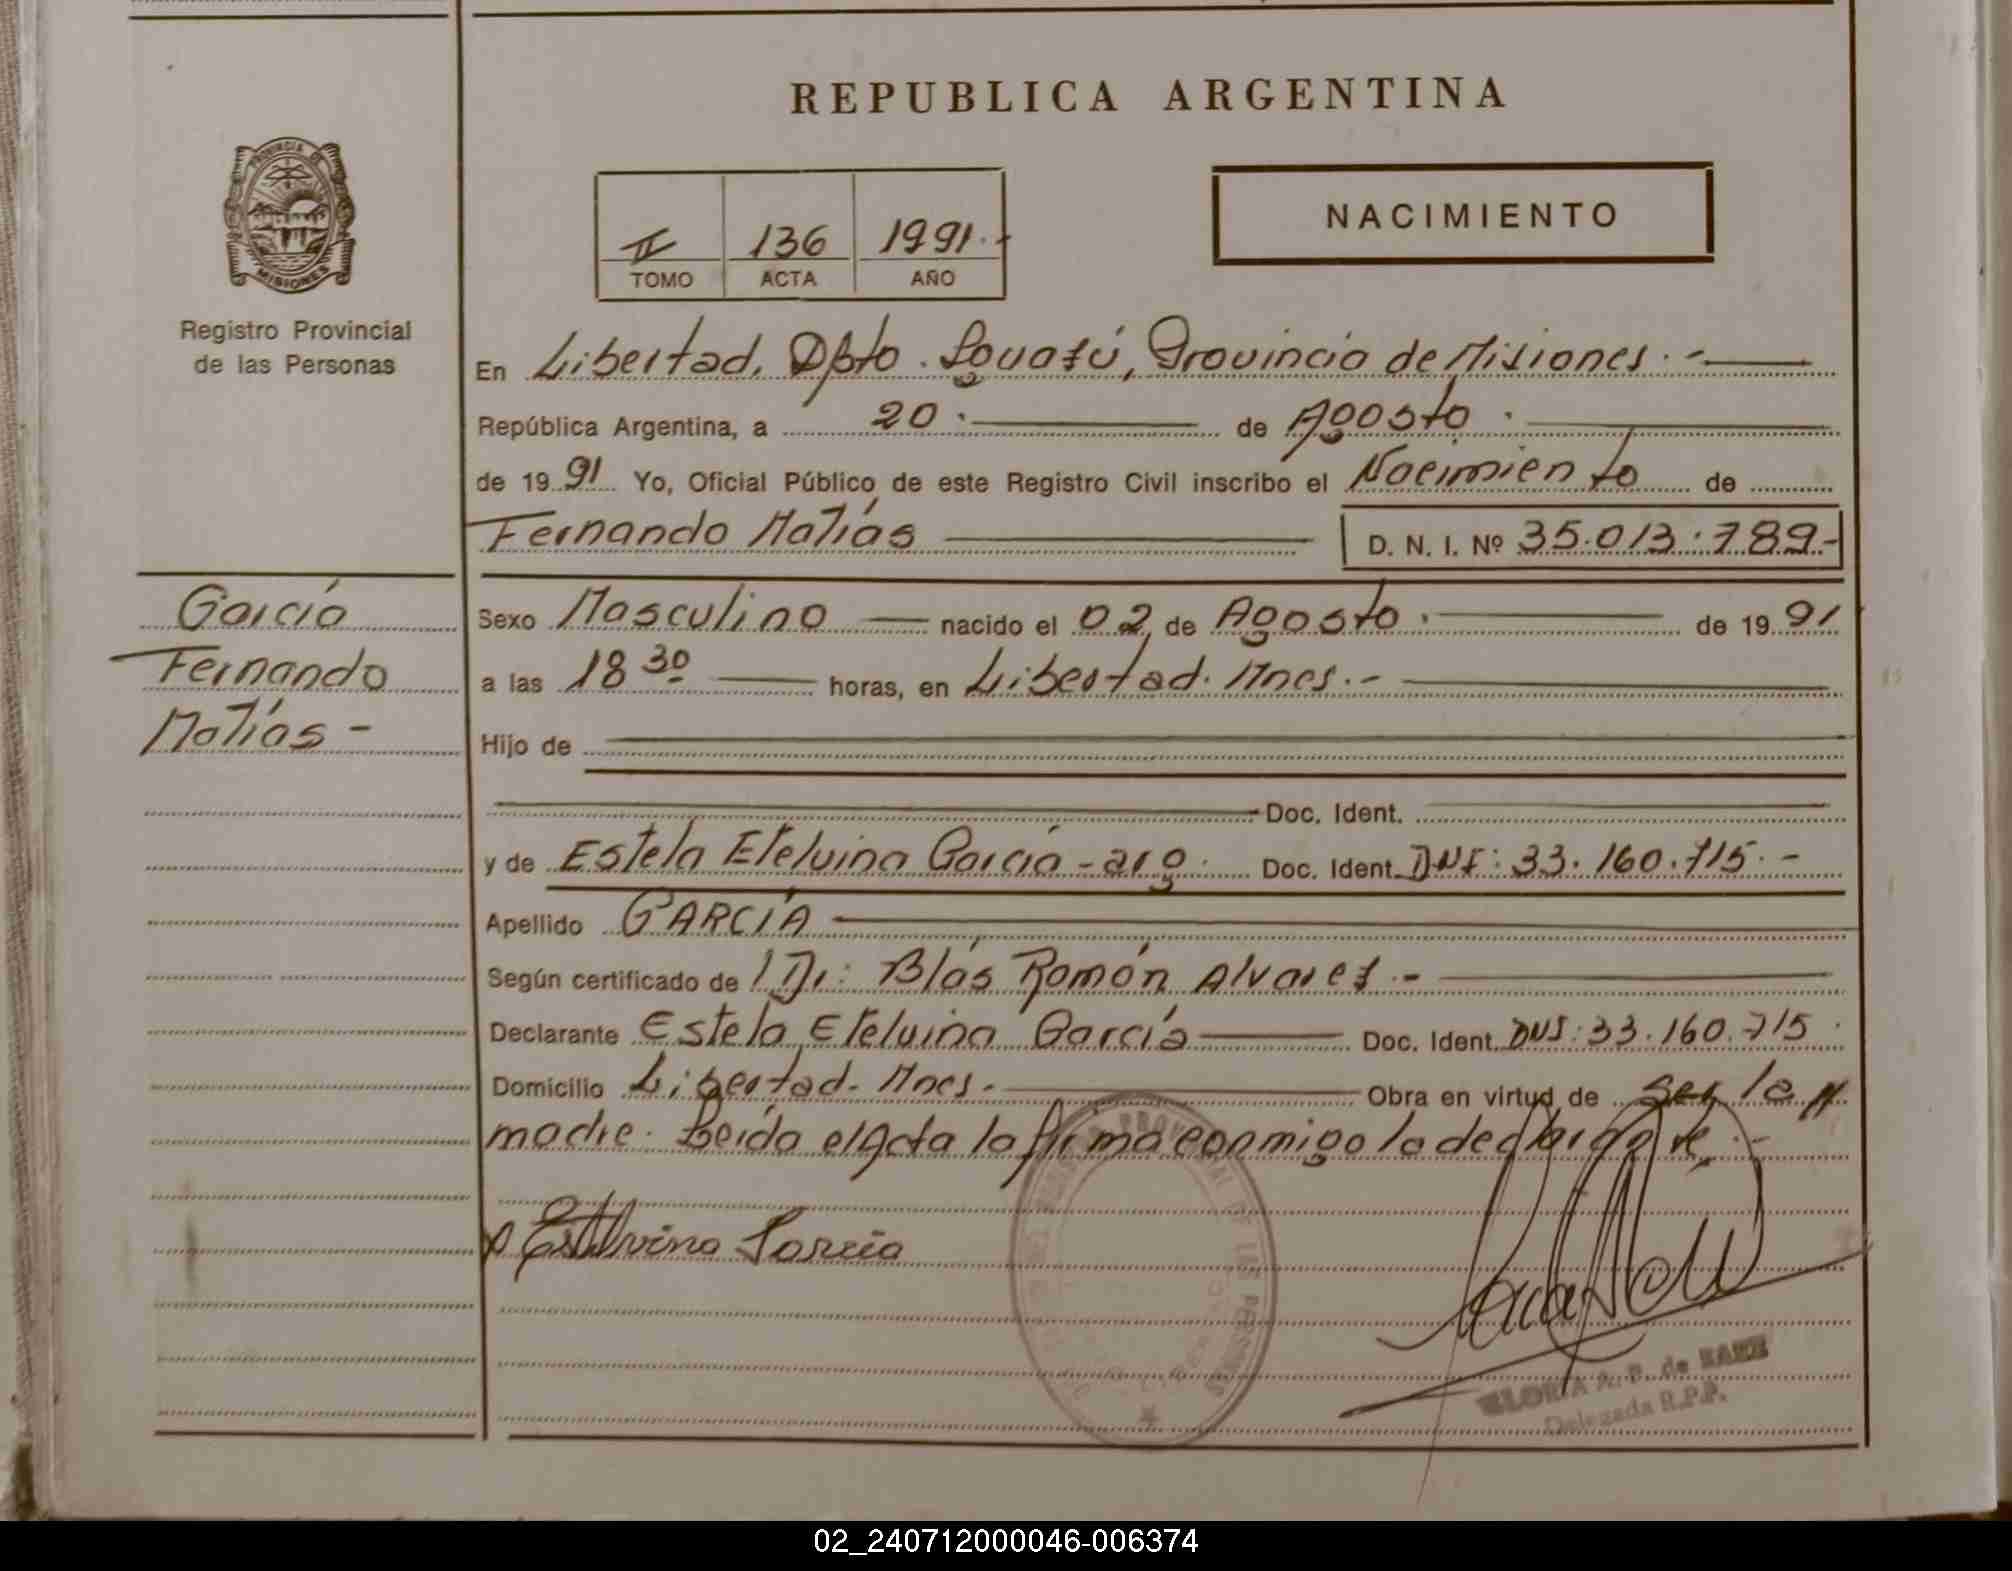 REPUBLICA ARGENTINA
PROVINCIA DE
MISIONES
Registro Provincial
de las Personas
II 136 1991.-
TOMO ACTA AÑO
NACIMIENTO
En Libertad, Dpto. Iguazú, Provincia de Misiones.-
República Argentina, a 20. de Agosto.
de 1991 Yo, Oficial Público de este Registro Civil inscribo el Nacimiento de
Fernando Matías D. N. I. Nº 35.013.789-
García
Fernando
Matías -
Sexo Masculino nacido el 02 de Agosto. de 1991
a las 18 30 horas, en Libertad. Mnes.-
Hijo de
Doc. Ident.
y de Estela Etelvina García - arg. Doc. Ident. DNI: 33.160.715.-
Apellido GARCÍA
Según certificado de Dr: Blás Ramón Alvarez.-
Declarante Estela Etelvina García Doc. Ident. DNI: 33.160.715.
Domicilio Libertad. Mnes. Obra en virtud de ser la
madre. Leída el Acta la firma conmigo la declarante.-
Etelvina Garcia
PROVINCIAL DE LAS PERSONAS
GLORIA A. P. de
Delegada R.P.P.
02_240712000046-006374